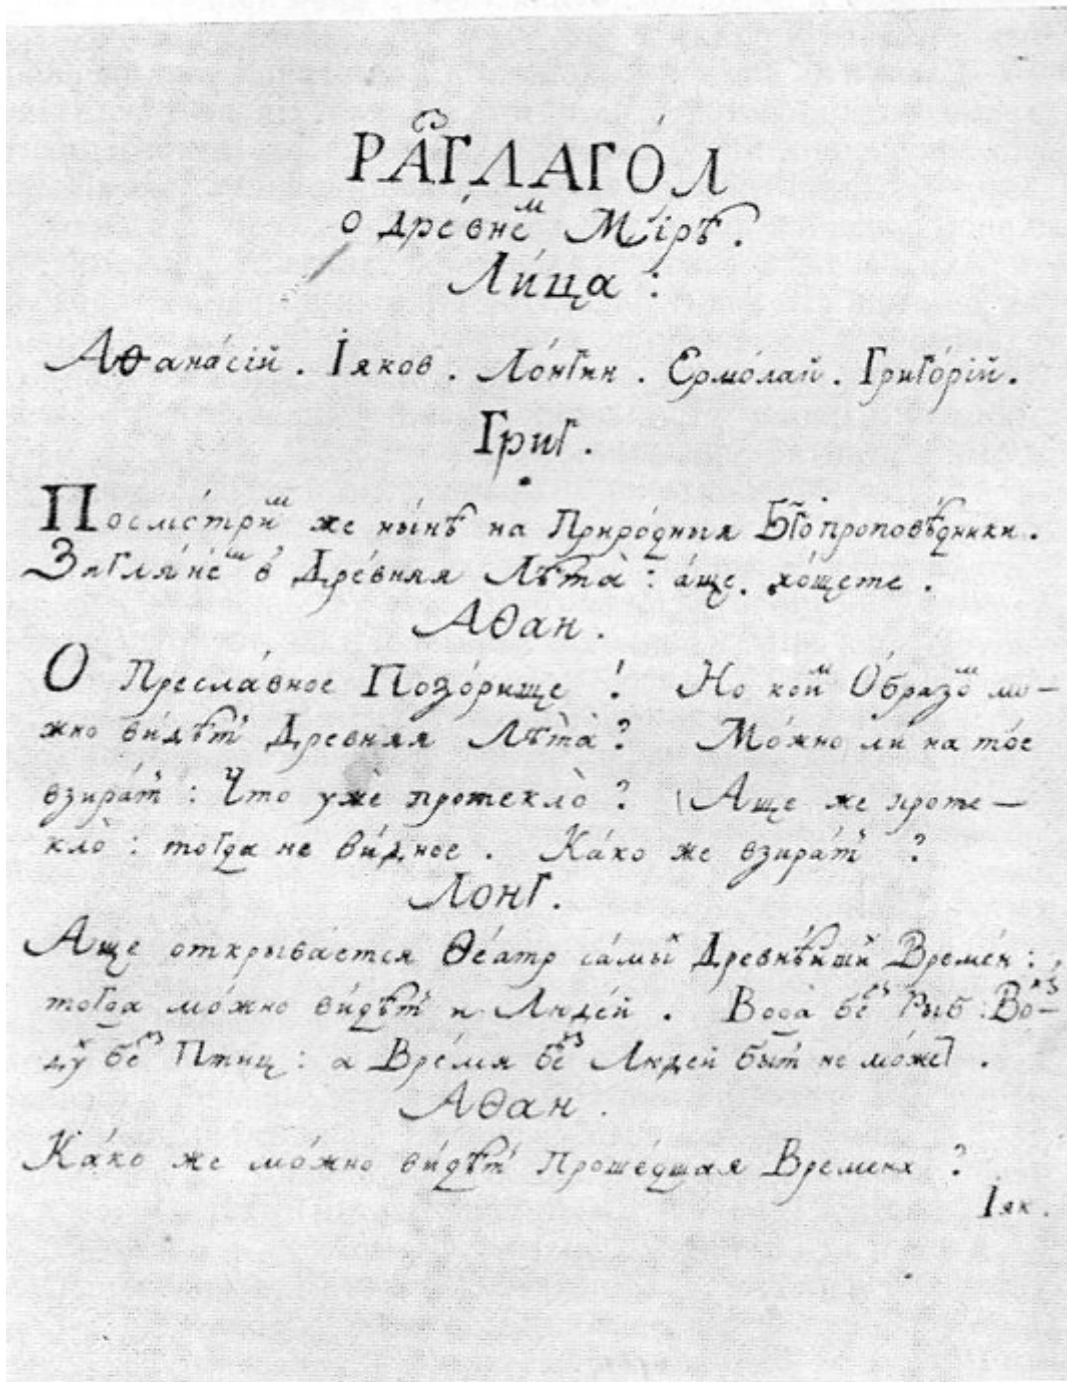 РАЗГЛАГО́Л
о дре́внем Мі́рѣ.
Ли́ца:
Аѳана́сій. Іяков. Ло́нгин. Ермо́лай. Григо́рій.
Григ.
Посмо́трим же ны́нѣ на Приро́дныя Бг҃опроповѣ́дники.
Загля́нем в Дре́вняя Лѣта̀: а́ще хо́щете.
Аѳан.
О Пресла́вное Позо́рище! Но коим О́бразом мо-
жно ви́дѣть Древняя Лѣта̀? Мо́жно ли на то́е
взира́ть: Что ужѐ протекло̀? Аще же проте-
кло̀: тогда не ви́дное. Ка́ко же взира́ть?
Лонг.
Аще открыва́ется Ѳеа́тр са́мых Древнѣ́йших Време́н:
тогда мо́жно ви́дѣть и Люде́й. Вода̀ без Рыб: Во-
зду́х без Птиц: а Вре́мя без Людей быть не мо́жет.
Аѳан.
Ка́ко же мо́жно ви́дѣть Проше́дшая Времена?
Іяк.